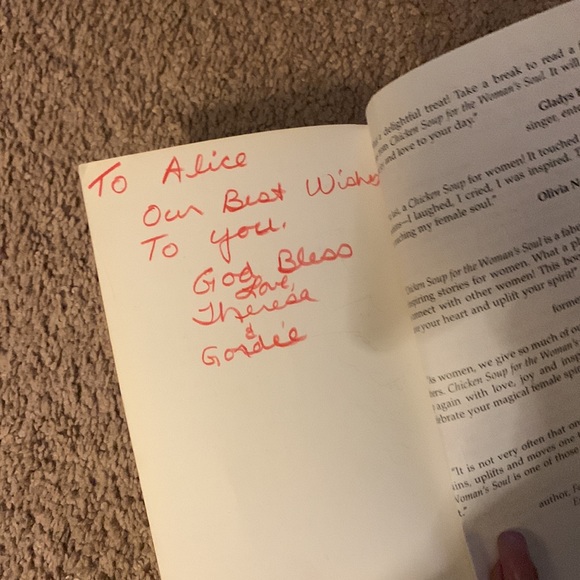 To Alice
Our Best Wishes
To you.
God Bless
Love,
Theresa
&
Gordie
delightful treat! Take a break to read a
Chicken Soup for the Woman's Soul. It will
and love to your day."
Gladys
singer, ente
a Chicken Soup for women! It touched
—I laughed, I cried, I was inspired.
my female soul."
Olivia N
Soup for the Woman's Soul is a
stories for women. What a
with other women! This
your heart and uplift your spirit!
forme
women, we give so much of
Chicken Soup for the Woman's
again with love, joy and
your magical female
"It is not very often that
uplifts and moves one
Woman's Soul is one of those
author,